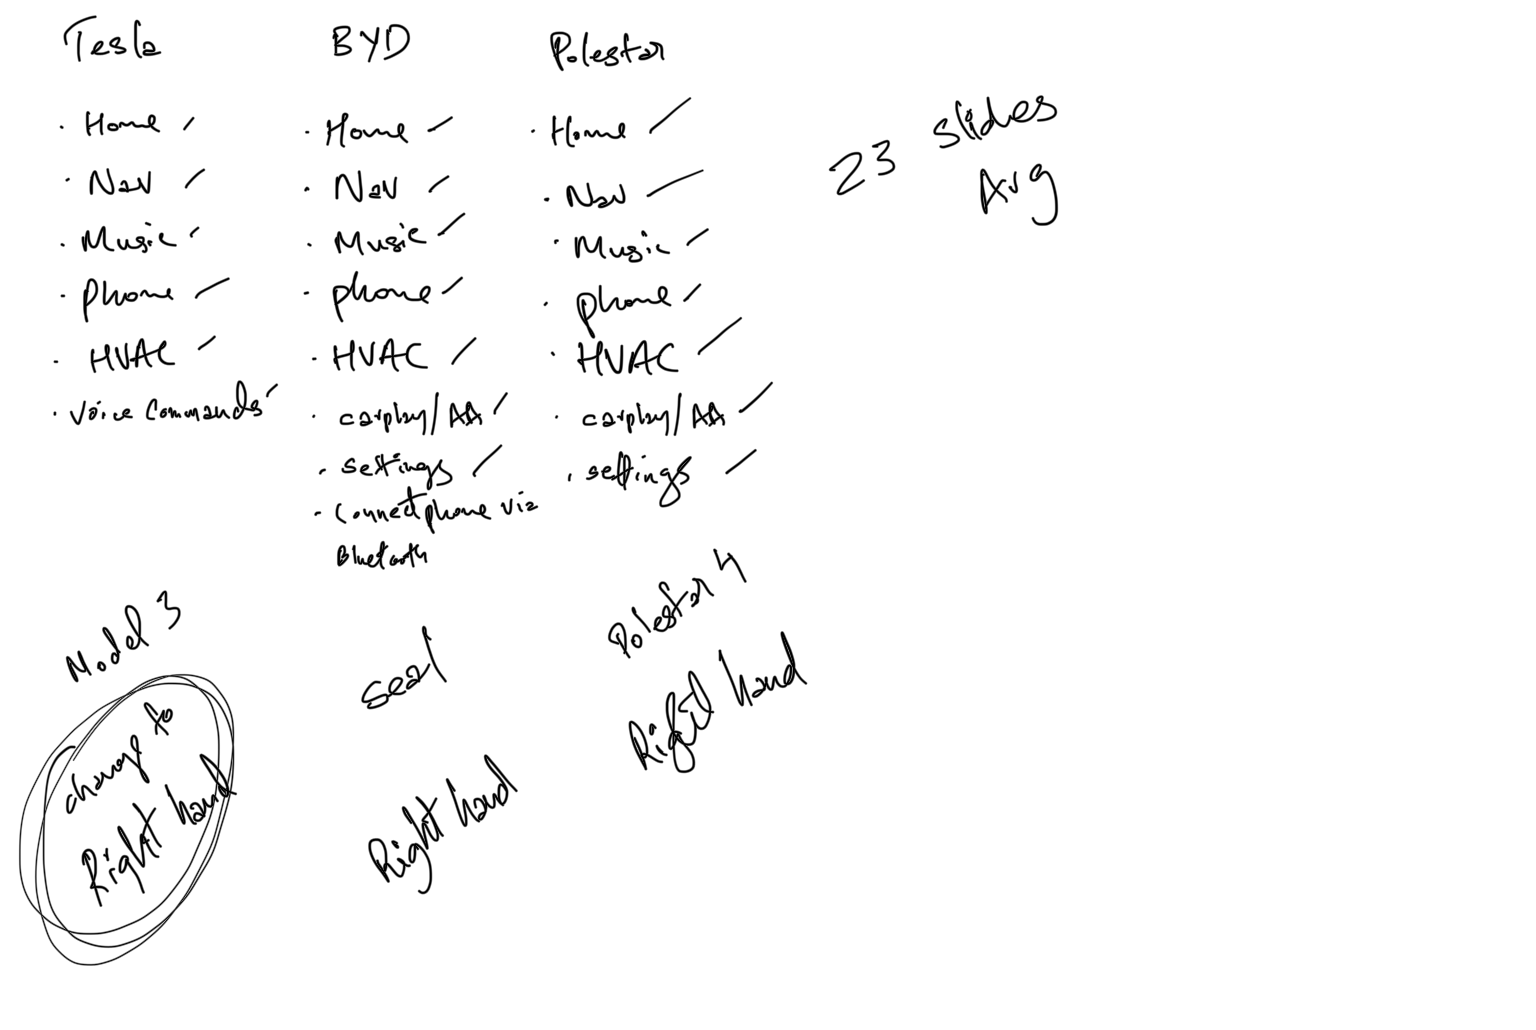 Tesla
· Home
· Nav
· Music
· Phone
· HVAC
· Voice Commands
Model 3
change to
Right hand
BYD
· Home
· Nav
· Music
· phone
· HVAC
· carplay/AA
· settings
· Connect phone via
Bluetooth
seal
Right hand
Polestar
· Home
· Nav
· Music
· phone
· HVAC
· carplay/AA
· settings
Polestar 4
Right hand
23 slides
Avg